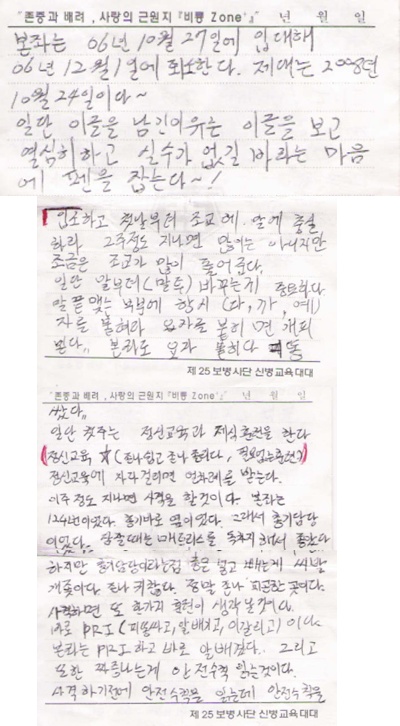 "존중과 배려, 사랑의 근원지『비룡 Zone』" 년 월 일
본좌는 06년 10월 27일에 입대해
06년 12월 1일에 퇴소한다. 제대는 2008년
10월 24일이다~
일단 이글을 남긴이유는 이글을 보고
열심히하고 실수가 없길 바라는 마음
에 펜을 잡는다~!
입소하고 첫날부터 조교에 말에 충실
하라 2주정도 지나면 많이는 아니지만
조금은 조교가 많이 풀어준다.
일단 말부터 (말투) 바꾸는게 중요하다
말 끝맺는 부분에 항시 (다, 까, 예)
자를 붙혀라 요자를 붙히면 개피
본다.. 본좌도 요자 붙히다 똥
제 25 보병사단 신병교육대대
"존중과 배려, 사랑의 근원지『비룡 Zone』" 년 월 일
쌌다..
일단 첫주는 정신교육과 제식훈련을 한다
정신교육 (존나 쉽고 존나 졸리다, 필요없는훈련?)
정신교육에 자다걸리면 얼차려를 받는다.
이주 정도 지나면 사격을 할것이다 본좌는
124번이였다. 총기바로 옆이였다. 그래서 총기담당
이였다. 잠잘때는 매트리스를 독차지해서 좋았다
하지만 총기담당이라는점 총을 넣고 빼는게 씨발
개좆이다. 존나 귀찮다. 정말 존나 피곤한 곳이다.
사격하면 또 한가지 훈련이 생각날것이다.
바로 PRI (피똥싸고, 알배기고, 이갈리고) 이다
본좌는 PRI 하고 바로 알배겼다. 그리고
또한 짜증나는게 안전수칙 읽는것이다.
사격하기전에 안전수칙을 읽는데 안전수칙을
제 25 보병사단 신병교육대대